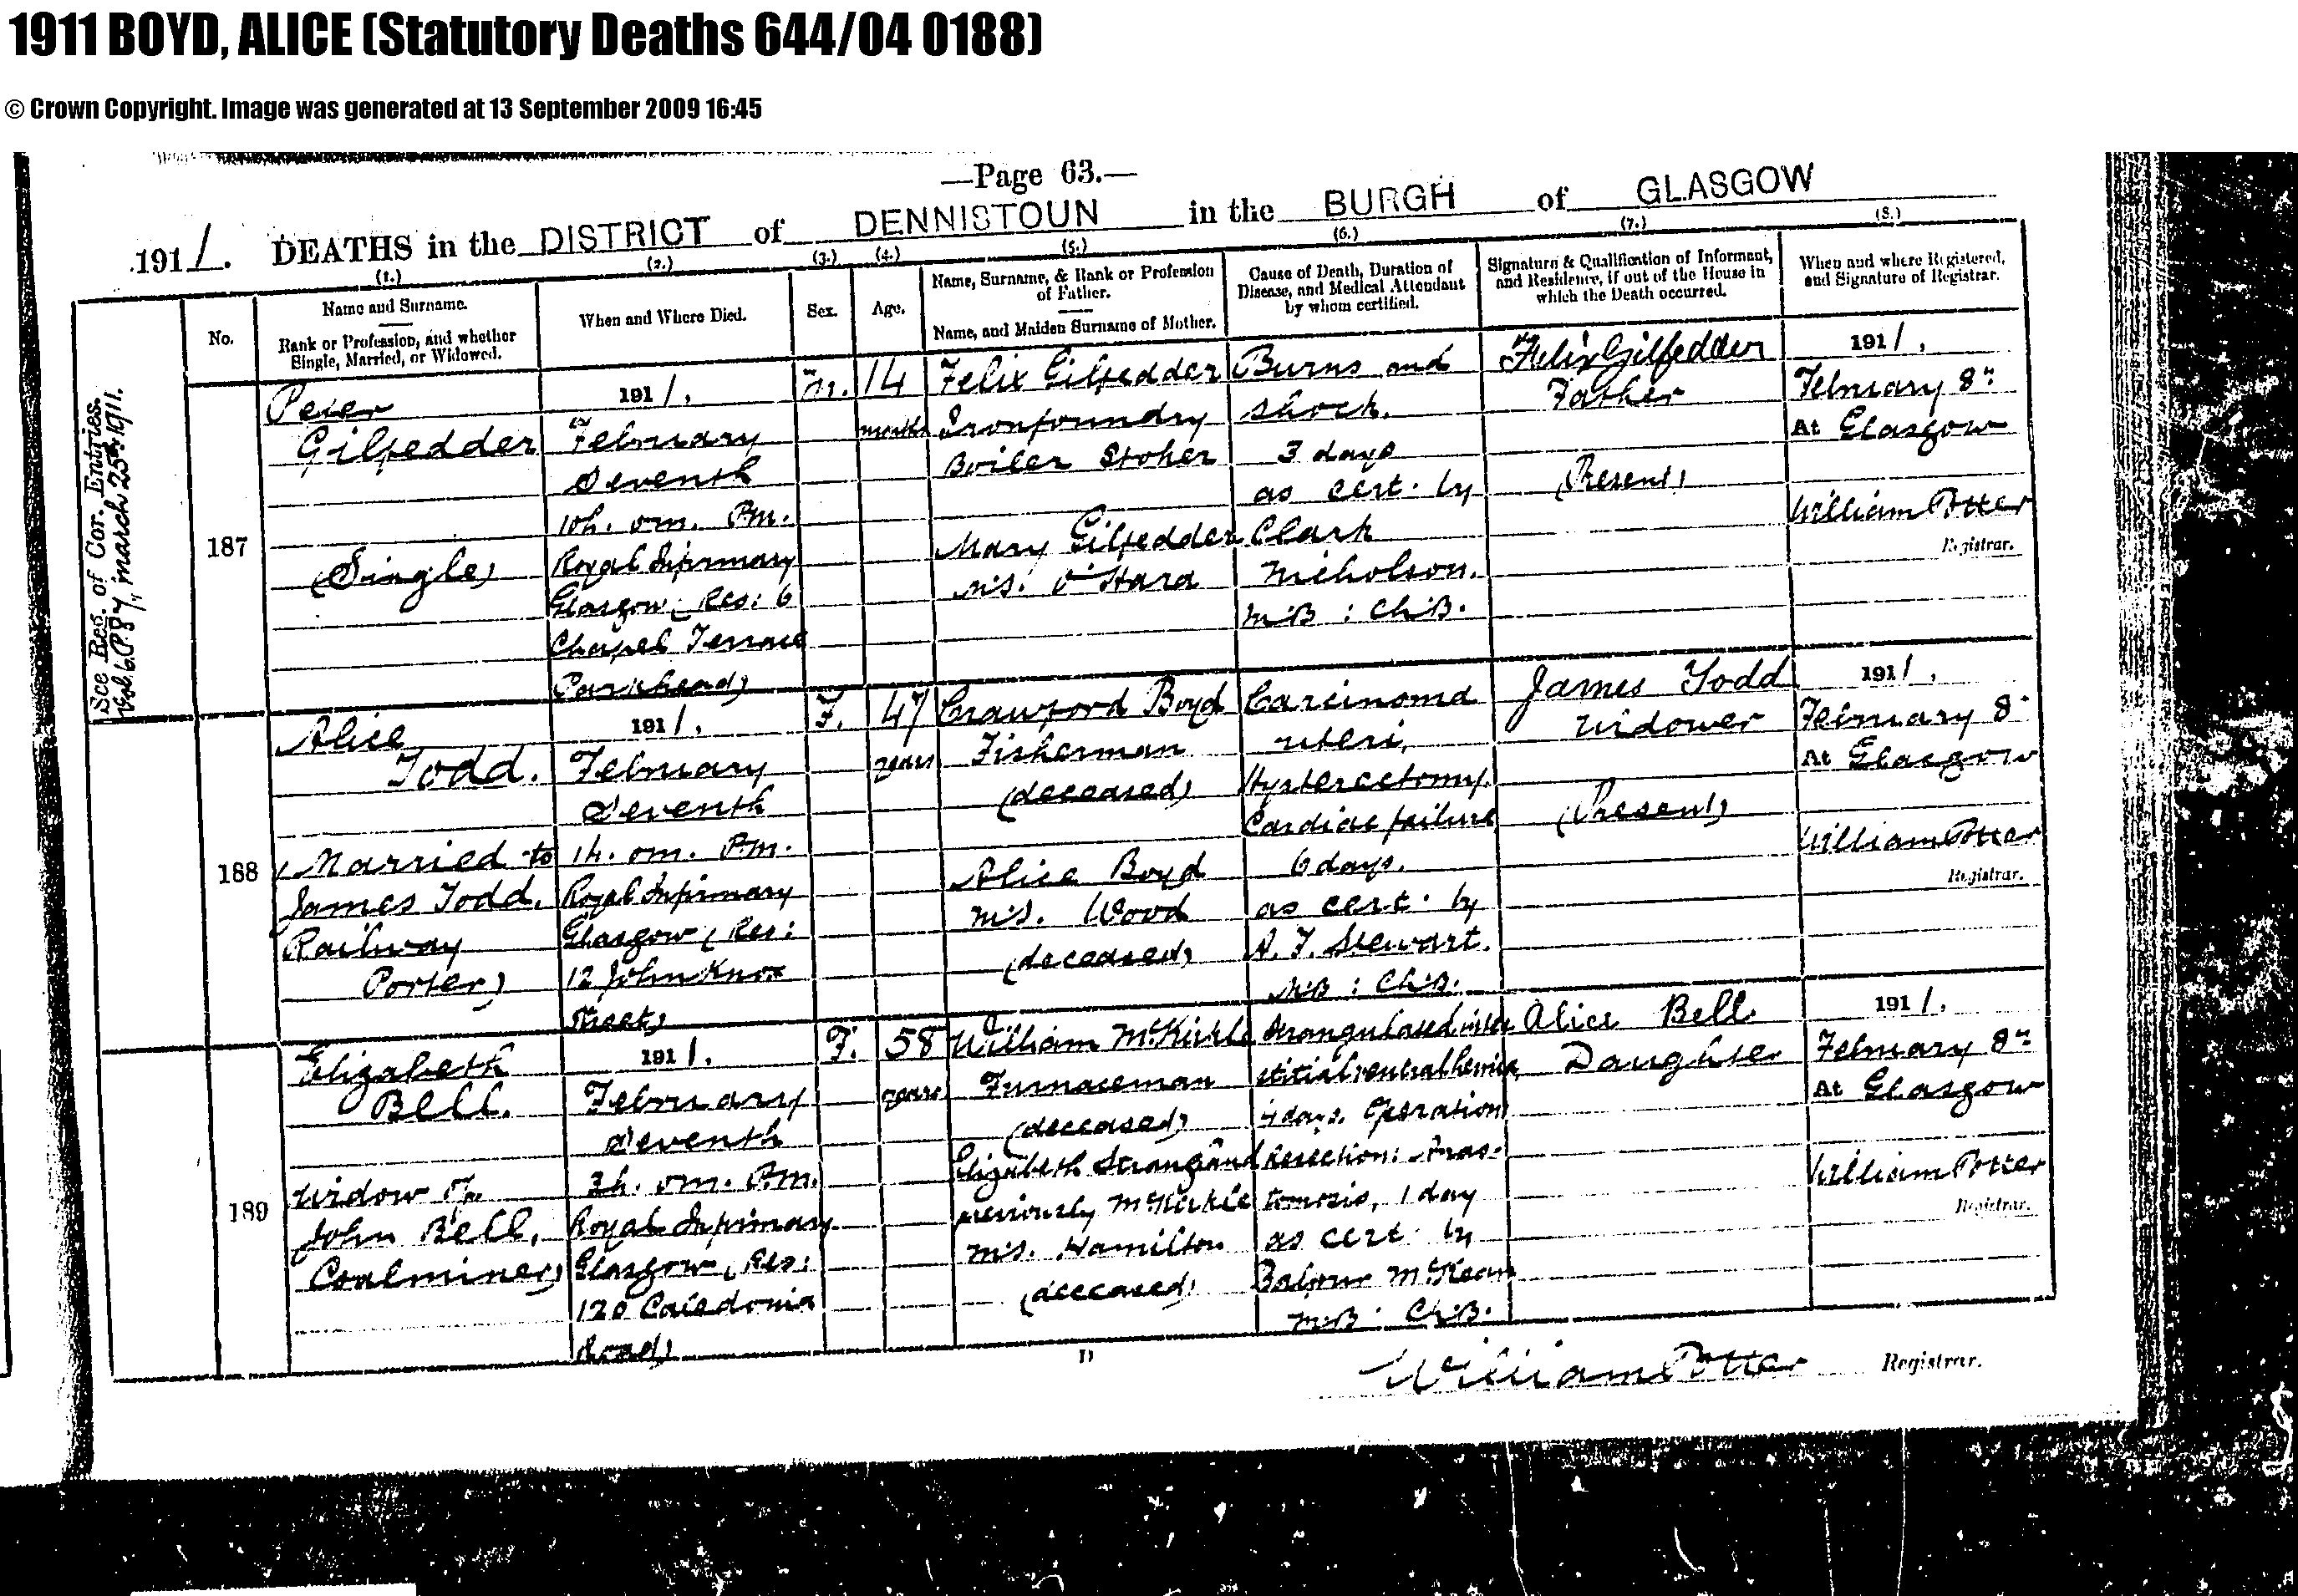 1911 BOYD, ALICE (Statutory Deaths 644/04 0188)
© Crown Copyright. Image was generated at 13 September 2009 16:45
—Page 63.—
1911. DEATHS in the DISTRICT of DENNISTOUN in the BURGH of GLASGOW
(1.) (2.) (3.) (4.) (5.) (6.) (7.) (8.)
No.
Name and Surname.
Rank or Profession, and whether
Single, Married, or Widowed.
When and Where Died.
Sex.
Age.
Name, Surname, & Rank or Profession
of Father.
Name, and Maiden Surname of Mother.
Cause of Death, Duration of
Disease, and Medical Attendant
by whom certified.
Signature & Qualification of Informant,
and Residence, if out of the House in
which the Death occurred.
When and where Registered,
and Signature of Registrar.
See Reg. of Cor. Entries.
Vol. 6. P. 87, March 25th 1911.
187
Peter
Gilfedder
(Single)
1911.
February
Seventh
10h. 0m. P.M.
Royal Infirmary
Glasgow, (Res: 6
Chapel Terrace
Parkhead)
M.
14
months
Felix Gilfedder
Ironfoundry
Boiler Stoker
Mary Gilfedder
M.S. O'Hara
Burns and
Shock.
3 days
as cert. by
Clark
Nicholson.
M.B : Ch.B.
Felix Gilfedder
Father
(Present)
1911.
February 8th
At Glasgow
William Potter
Registrar.
188
Alice
Todd.
(Married to
James Todd,
Railway
Porter)
1911.
February
Seventh
1h. 0m. P.M.
Royal Infirmary
Glasgow, (Res:
12 John Knox
Street)
F.
47
years
Crawford Boyd
Fisherman
(deceased)
Alice Boyd
M.S. Wood
(deceased)
Carcinoma
uteri,
Hysterectomy.
Cardiac failure
6 days.
as cert. by
A. F. Stewart.
M.B : Ch.B.
James Todd
Widower
(Present)
1911.
February 8
At Glasgow
William Potter
Registrar.
189
Elizabeth
Bell.
Widow of
John Bell,
Coalminer)
1911.
February
Seventh
3h. 0m. P.M.
Royal Infirmary
Glasgow, (Res:
120 Caledonia
Road)
F.
58
years
William McKirkle
Furnaceman
(deceased)
Elizabeth Strang and
previously McKirkle
M.S. Hamilton
(deceased)
Strangulated inter
stitial ventral hernia
4 days. Operation
Resection: Anas-
tomosis, 1 day
as cert. by
Balfour McKean
M.B : Ch.B.
Alice Bell.
Daughter
1911.
February 8th
At Glasgow
William Potter
Registrar.
D
William Potter Registrar.